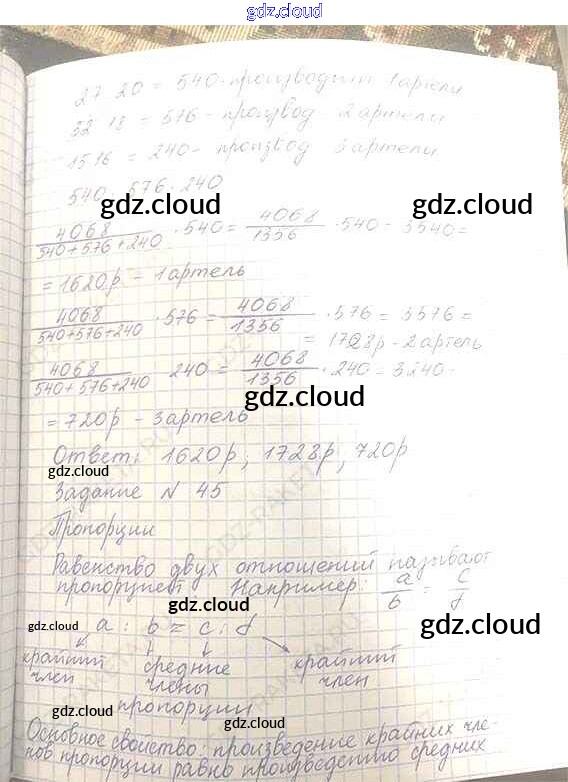 gdz.cloud
27 20 = 540 - производит 1 артели
32 18 = 576 - производ 2 артели
15 16 = 240 - производ 3 артели
540 : 576 : 240
gdz.cloud gdz.cloud
4068/540+576+240 · 540 = 4068/1356 · 540 = 3540 =
= 1620р - 1 артель
4068/540+576+240 · 576 = 4068/1356 · 576 = 3576 =
= 1728р - 2 артель
4068/540+576+240 240 = 4068/1356 · 240 = 3240 -
gdz.cloud
= 720р - 3 артель
Ответ: 1620р, 1728р, 720р
gdz.cloud
Задание N 45
Пропорции
Равенство двух отношений называют
пропорцией Например: a/b = c/d
gdz.cloud
gdz.cloud a : b = c : d gdz.cloud
крайний средние крайний
член члены член
пропорции
gdz.cloud
Основное свойство: произведение крайних чле-
нов пропорции равно произведению средних
gdz.cloud gdz.cloud